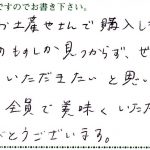 ですのでお書き下さい。
お土産やさんで購入し
のものしか見つからず、ぜ
いただきたいと思い
全員で美味くいただ
がとうございます。